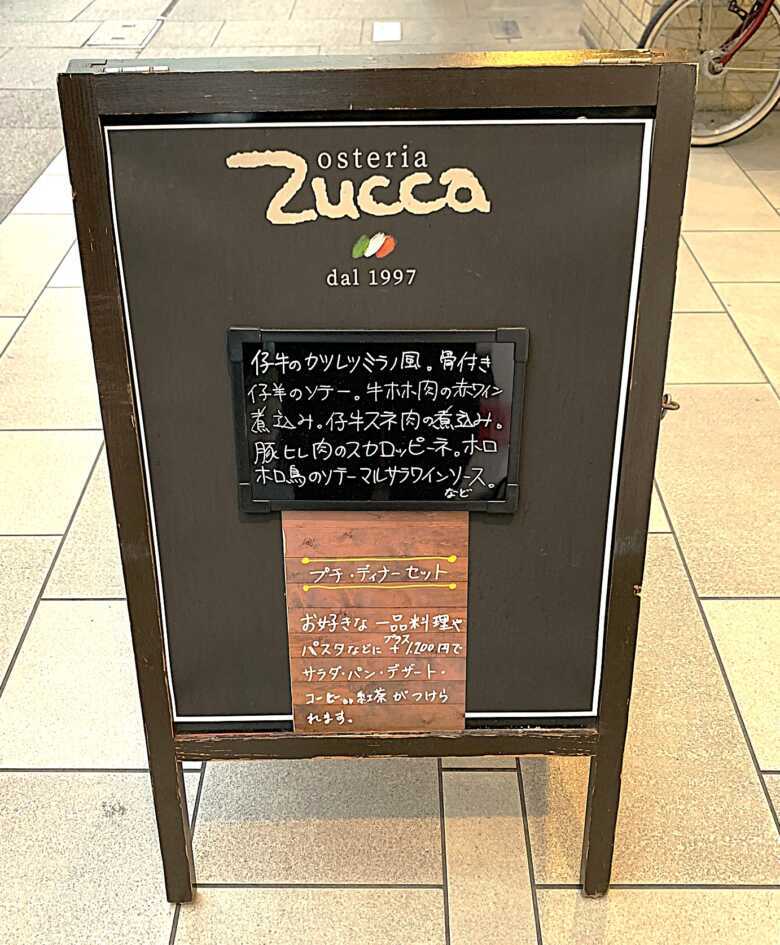 osteria
Zucca
dal 1997
仔牛のカツレツミラノ風。骨付き
仔羊のソテー。牛ホホ肉の赤ワイン
煮込み。仔牛スネ肉の煮込み。
豚ヒレ肉のスカロッピーネ。ホロ
ホロ鳥のソテーマルサラワインソース。
など
プチ・ディナーセット
お好きな一品料理や
パスタなどに+プラス1,200円で
サラダ・パン・デザート・
コーヒーor紅茶がつけら
れます。